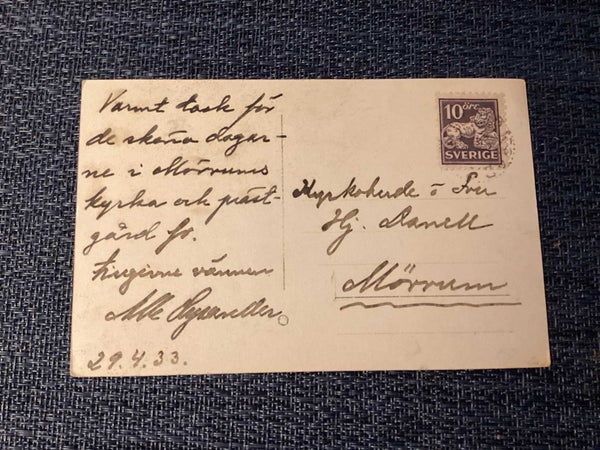 Varmt tack för
de sköna dagar-
ne i Mörrums
kyrka och präst-
gård fr.
tillgivne vännen
29.4.33.
10 ÖRE
SVERIGE
Kyrkoherde o Fru
Hj. Danell
Mörrum